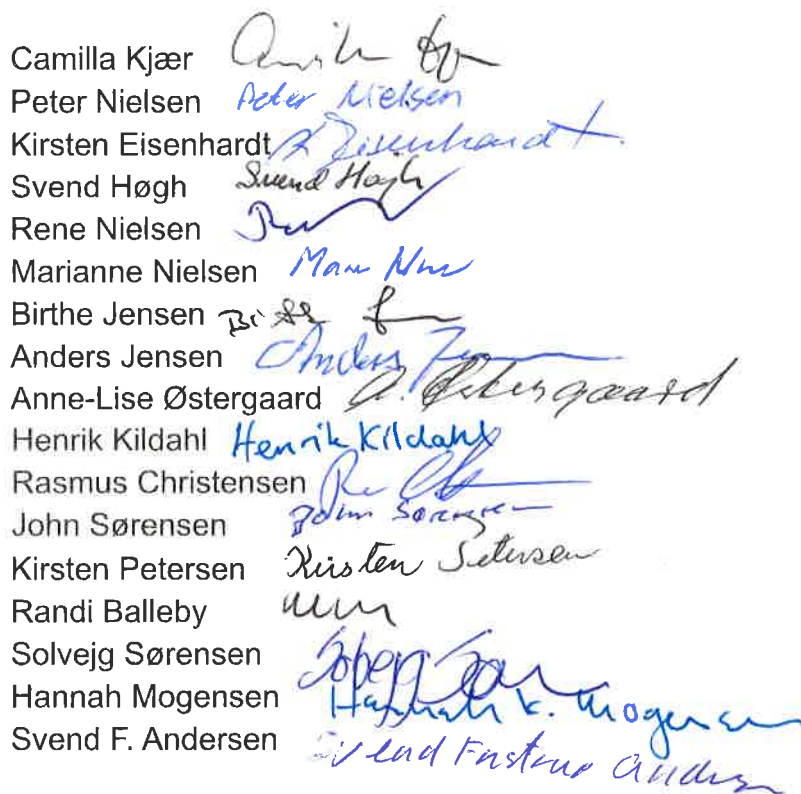 Camilla Kjær
Peter Nielsen Peter Nielsen
Kirsten Eisenhardt K Eisenhardt
Svend Høgh Svend Høgh
Rene Nielsen
Marianne Nielsen
Birthe Jensen
Anders Jensen Anders
Anne-Lise Østergaard A. Østergaard
Henrik Kildahl Henrik Kildahl
Rasmus Christensen
John Sørensen John Sørensen
Kirsten Petersen Kirsten Petersen
Randi Balleby
Solvejg Sørensen
Hannah Mogensen Hannah K. Mogensen
Svend F. Andersen Svend Fastrup Andersen